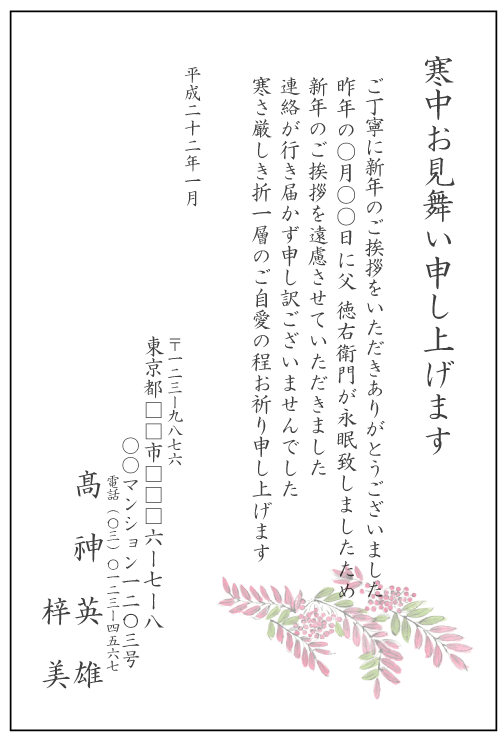 寒中お見舞い申し上げます
ご丁寧に新年のご挨拶をいただきありがとうございました
昨年の〇月〇〇日に父 徳右衛門が永眠致しましたため
新年のご挨拶を遠慮させていただきました
連絡が行き届かず申し訳ございませんでした
寒さ厳しき折一層のご自愛の程お祈り申し上げます
平成二十二年一月
〒一二三ー九八七六
東京都□□市□□□六ー七ー八
〇〇マンション一二〇三号
電話（〇三）〇一二三ー四五六七
髙神英雄
梓美